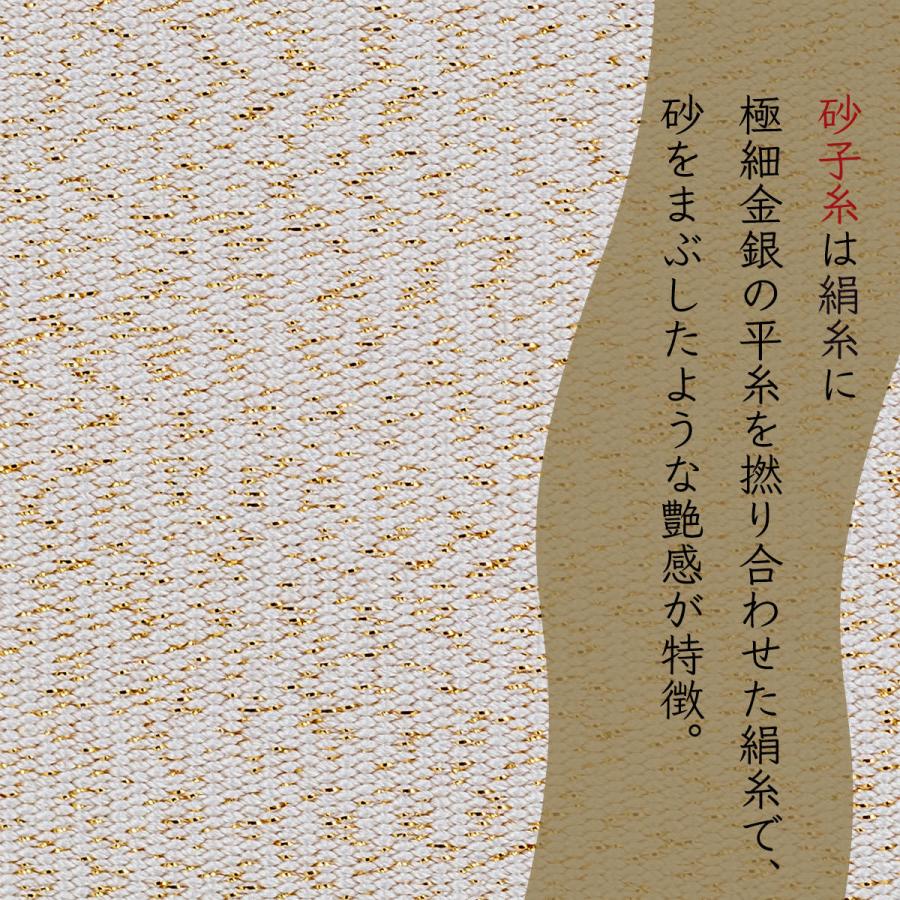 砂子糸は絹糸に
極細金銀の平糸を撚り合わせた絹糸で、
砂をまぶしたような艶感が特徴。